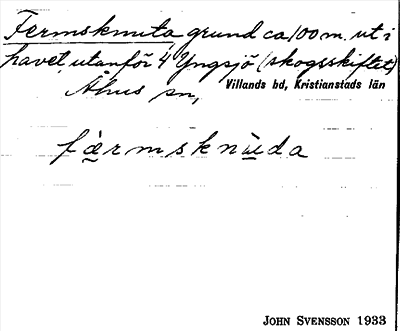 Fermsknuta, grund ca 100 m. ut i
havet, utanför 4 Yngsjö (skogsskiftet)
Åhus sn, Villands hd, Kristianstads län
färmsknuda
JOHN SVENSSON 1933